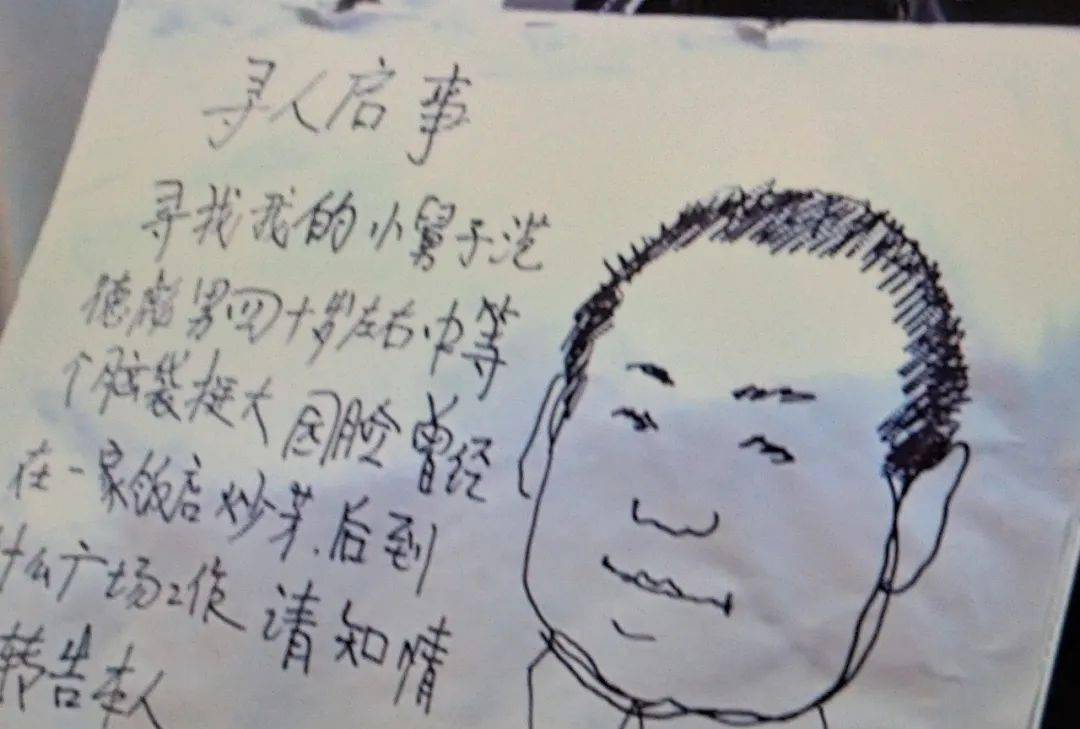 寻人启事
寻找我的小舅子范
德彪男四十岁左右中等
个脑袋挺大园脸曾经
在一家饭店炒菜.后到
什么广场工作请知情
转告本人